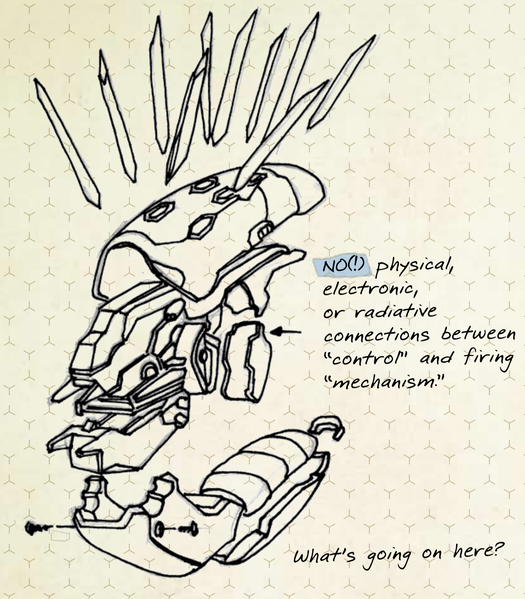 NO(!) physical,
electronic,
or radiative
connections between
"control" and firing
"mechanism."
What's going on here?